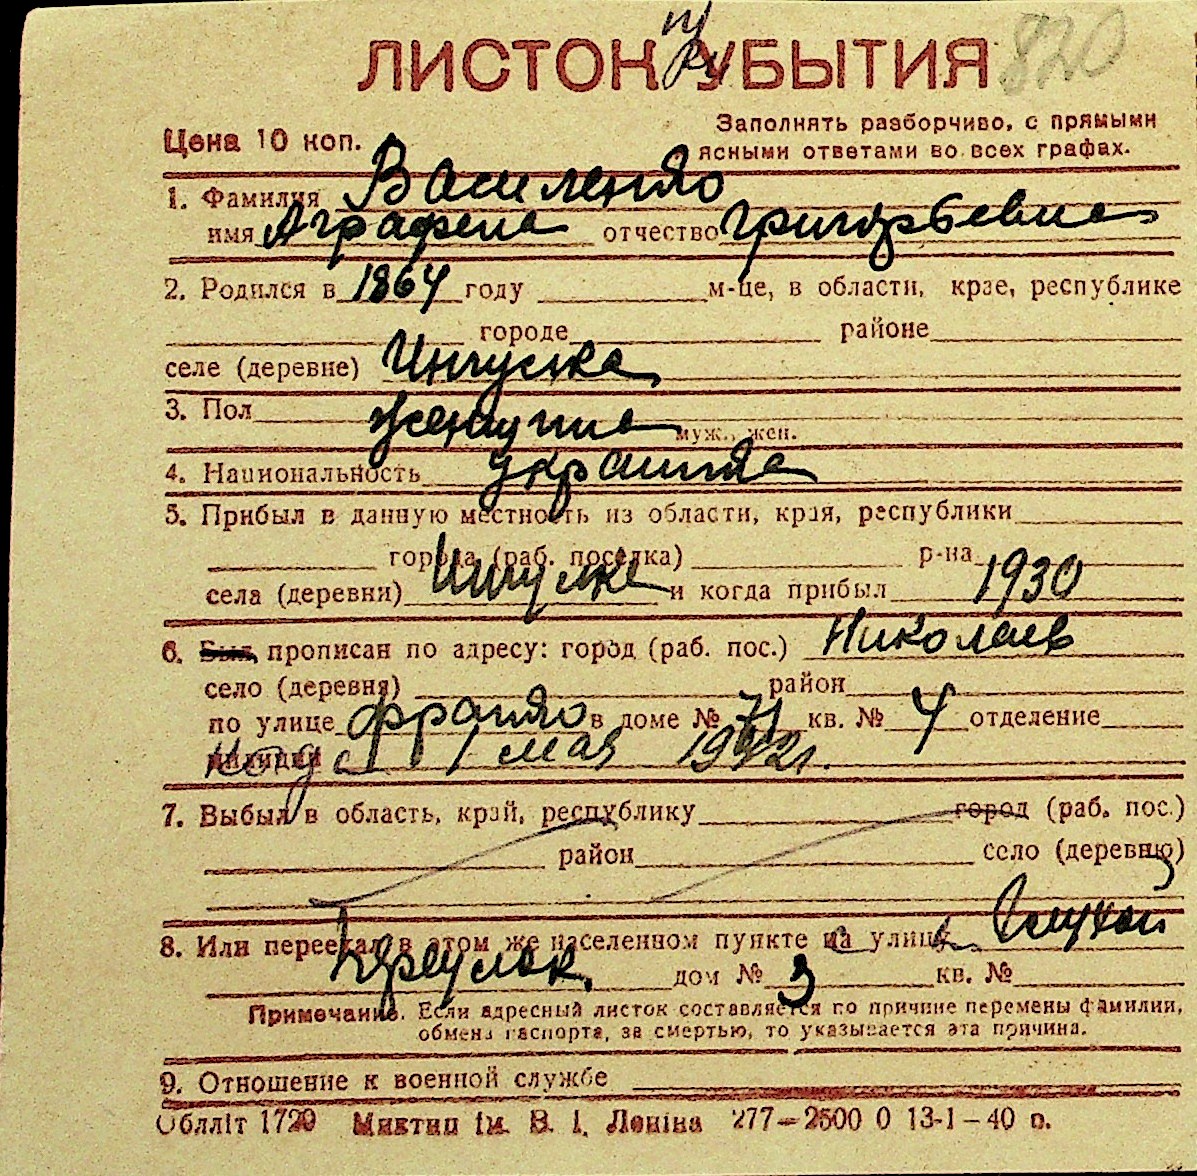 ЛИСТОК УБЫТИЯ 820
при
Цена 10 коп.
Заполнять разборчиво, с прямыми
ясными ответами во всех графах.
1. Фамилия Василенко
имя Аграфена отчество Григорьевна
2. Родился в 1864 году м-це, в области, крае, республике
городе районе
селе (деревне) Ингулка
3. Пол женщина муж., жен.
4. Национальность украинка
5. Прибыл в данную местность из области, края, республики
города (раб. поселка) р-на
села (деревни) Ингулка и когда прибыл 1930
6. Был прописан по адресу: город (раб. пос.) Николаев
село (деревня) район
по улице Франко в доме № 71 кв. № 4 отделение
милиции с 1 мая 1942 г.
7. Выбыл в область, край, республику город (раб. пос.)
район село (деревню)
8. Или переехал в этом же населенном пункте на улицу
дом № 3 кв. №
Примечание. Если адресный листок составляется по причине перемены фамилии,
обмена паспорта, за смертью, то указывается эта причина.
9. Отношение к военной службе
Обллiт 1729 Миктип iм. В. I. Ленiна 277—2500 0 13-1-40 р.